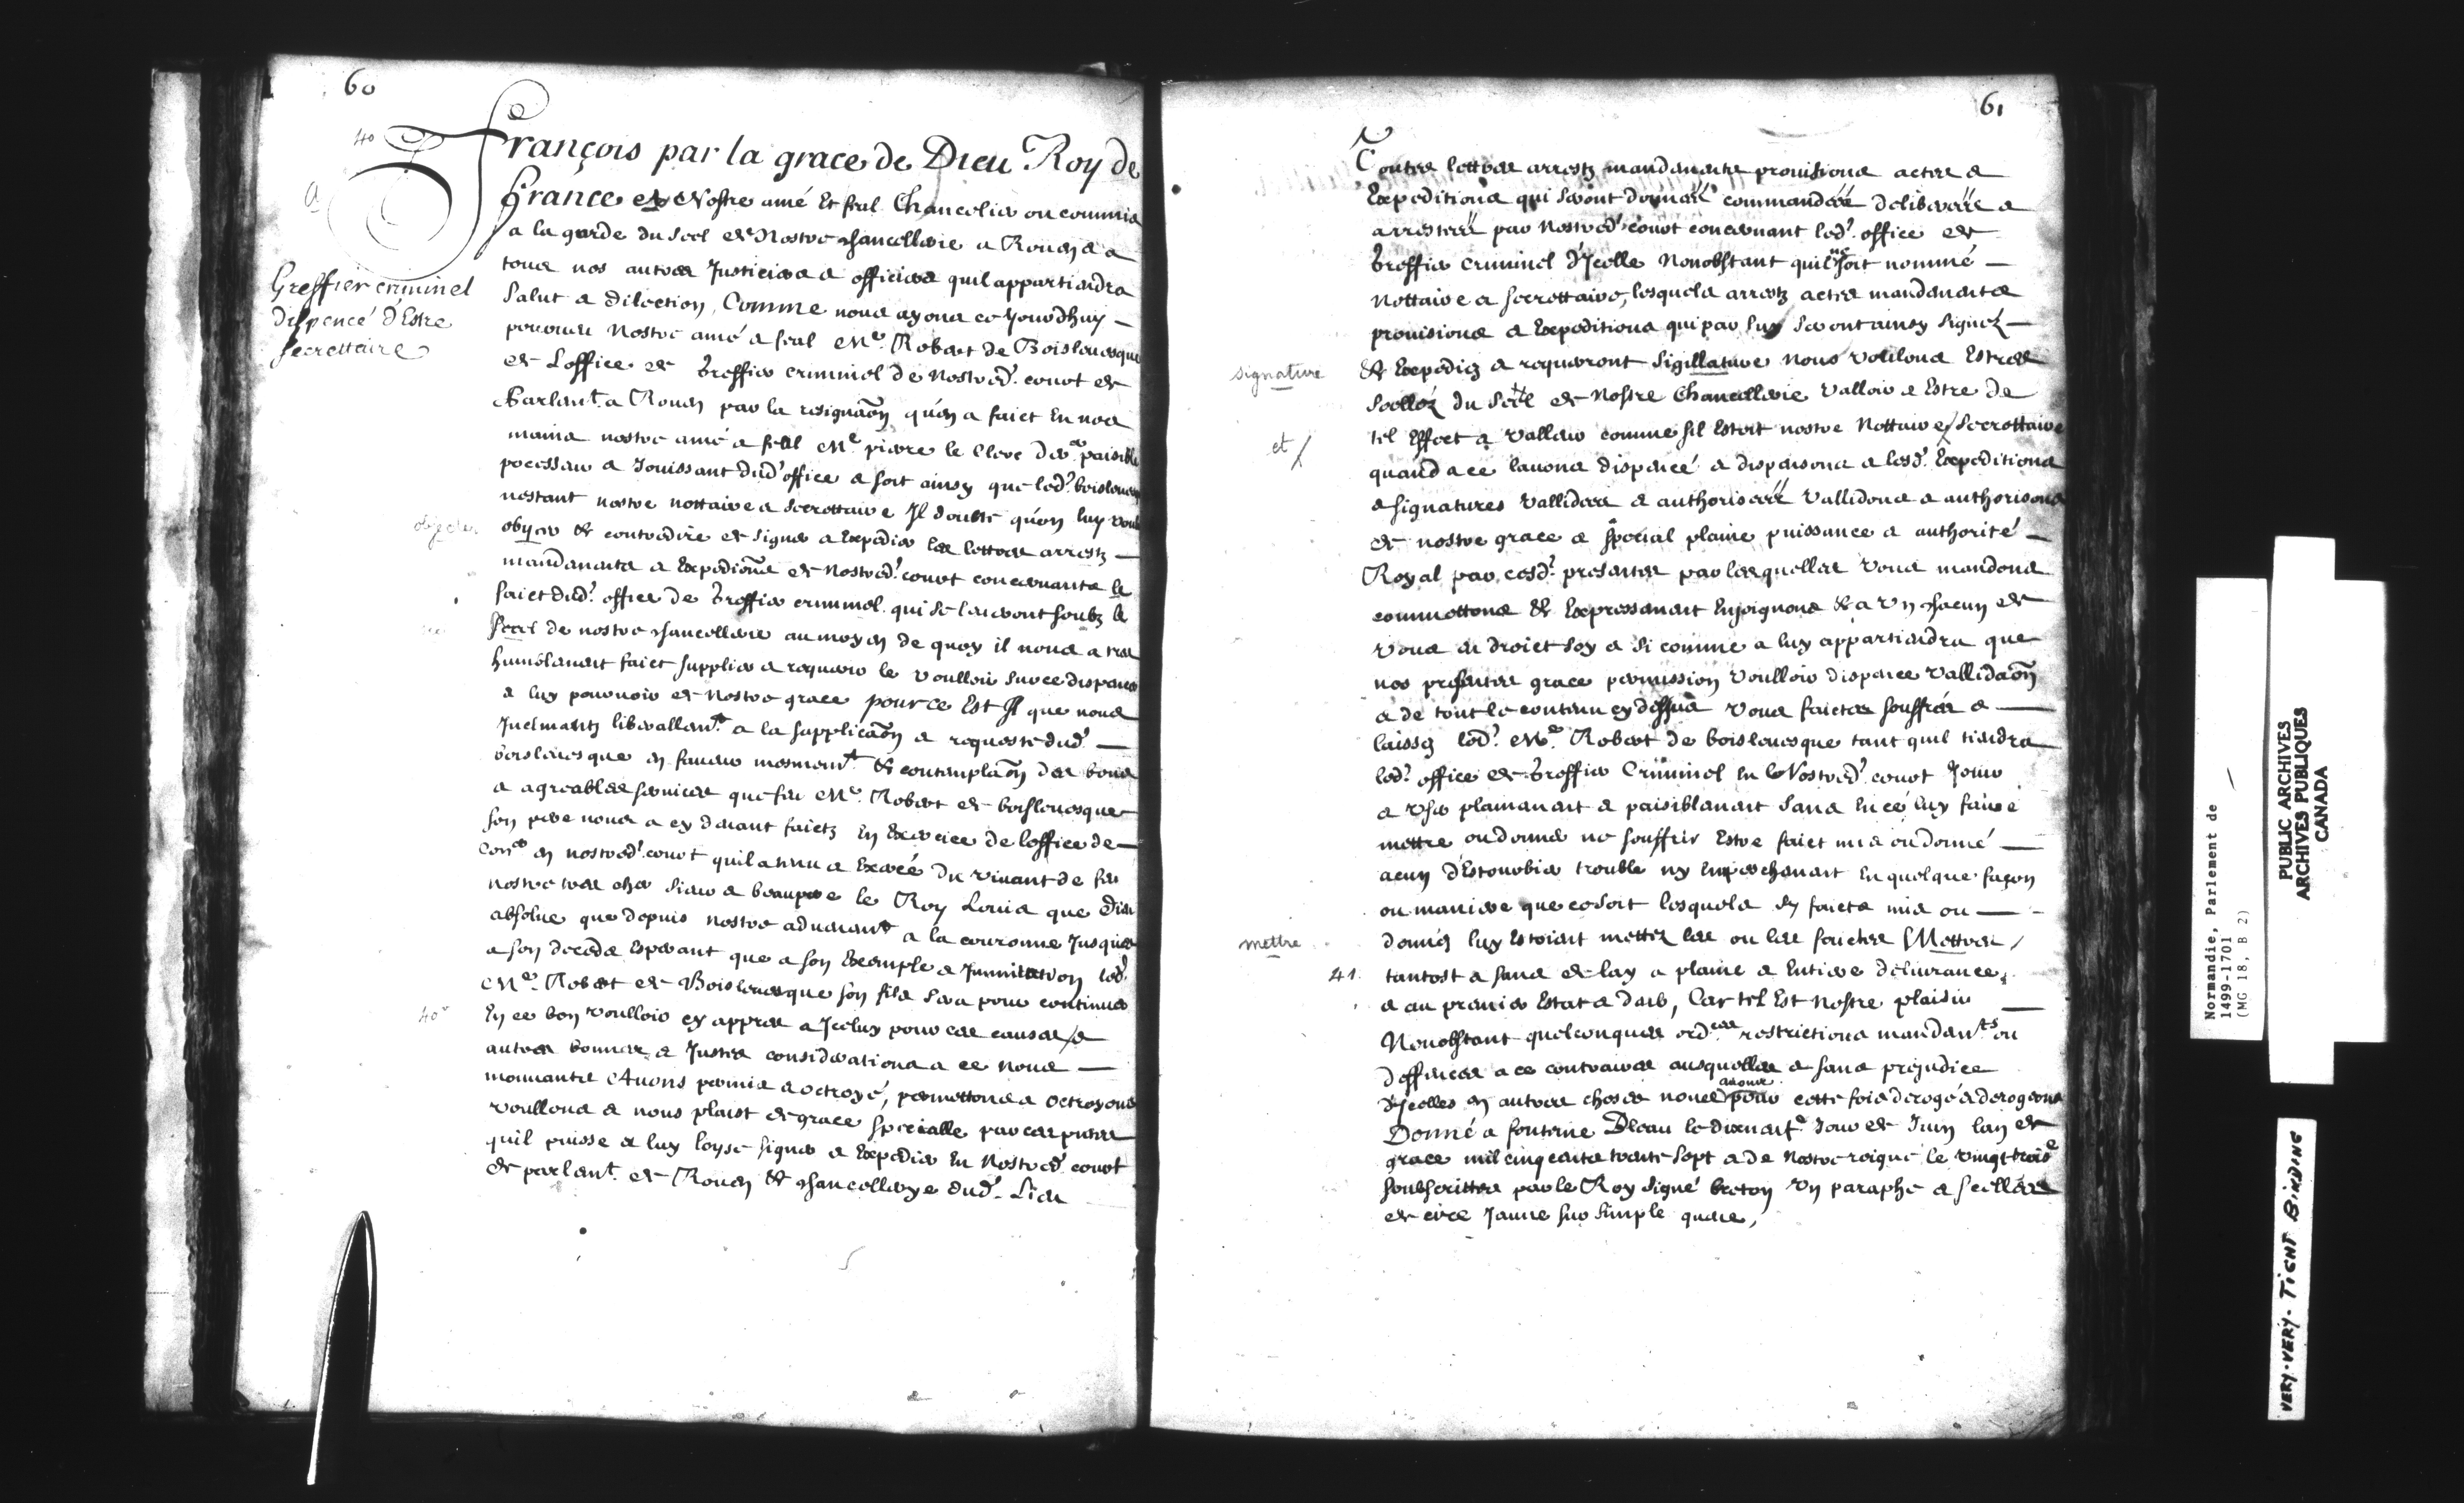 60
40
François par la grace de Dieu Roy de
France A Nostre amé et feal Chancelier ou commis
a la garde du scel de Nostre chancellerie a Rouen & a
tous nos autres Justiciers & officiers quil appartiendra
Salut & dilection, Comme nous ayons ce Jourdhuy
pourveu Nostre amé & feal Me. Robert de Boislevesque
de Loffice de Greffier criminel de nostred. court de
Parlemt. a Rouen par la resignaon quen a faict En nos
mains nostre amé & feal Me. pierre le Clerc der. paisible
possesseur & Jouissant dud. office & soit ainsy que led. boislevesque
nestant nostre nottaire & secrettaire Il doubte quon luy
obyer & contredire de signer & Expedier les lettres arrestz
mandements & Expedions de Nostred. court concernants le
faict dud. office de Greffier criminel qui se leveront soubz le
scel de nostre chancellerie au moyen de quoy il nous a tres
humblement faict supplier & requerir le voulloir sur ce dispencer
& luy pourvoir de Nostre grace pour ce Est Il que nous
Inclinants liberallemt. a la supplicaon & requeste dud.
boislevesque en faveur mesmemt. & contemplaon des bons
& agreables services que feu Me. Robert de boislevesque
son pere nous a cy devant faictz En Exercice de loffice de
Coner en nostred. court quil a tenu & Exercé du vivant de feu
nostre tres cher sieur & beaupere le Roy Louis que Dieu
absolve que depuis nostre advenemt a la couronne Jusques
a son deceds Esperant que a son Exemple & Immitation led.
Me. Robert de Boislevesque son fils sera pour continuer
En ce bon voulloir cy appres a Jceluy pour ces causes &
autres bonnes & Justes considerations a ce nous
mouvantes Avons permis & octroyé, permettons & octroyons
voullons & nous plaist de grace specialle par ces pntes
quil puisse & luy loyse signer & Expedier En Nostred. court
de parlemt. de Rouen & chancellerye dud. Lieu
Greffier criminel
dispencé d'Estre
secrettaire
objecter
40v
61
Touttes lettres arrestz mandements provisions actes &
Expeditions qui seront données commandéés deliberéés &
arrestéés par Nostred. court concernant led. office de
Greffier criminel d'Jcelle Nonobstant quil ne soit nommé
Nottaire & secrettaire, lesquels arrestz actes mandements
provisions & Expeditions qui par luy seront ainsy signez
& Expediez & requerront sigillature nous voulons Estres
Scellez du Scel de Nostre Chancellerie valloir & Estre de
tel Effect & valleur comme sil Estoit nostre Nottaire / secrettaire
quand a ce lavons dispencé & dispensons & lesd. Expeditions
& signatures vallidées & authoriséés vallidons & authorisons
de nostre grace & special plaine puissance & authorité
Royal par cesd. presentes par lesquelles vous mandons
commettons & Expressement Enjoignons & a un chacun de
vous en droict soy & si comme a luy appartiendra que
nos presentes grace permission voulloir dispence vallidaon
& de tout le contenu cy dessus vous faictes souffrés &
laissez led. Me. Robert de boislevesque tant quil tiendra
led. office de Greffier Criminel En Nostred. court Jouir
& user plainement & paisiblement sans En ce luy faire
mettre ou donner ne souffrir Estre faict mis ou donné
aucun d'Estourbier trouble ny Empeschement En quelque façon
ou maniere que ce soit lesquels sy faicts mis ou
donnés luy Estoient mettez les ou les faictes Mettres /
tantost & sans delay a plaine & Entiere delivrance,
& au premier Estat & deub, Car tel Est Nostre plaisir
Nonobstant quelconques ordces restrictions mandemts ou
deffences a ce contraires ausquelles & sans prejudice
d'Jcelles en autres choses nous avons pour cette fois derogé & derogeons
Donné a fontaine Bleau le dixneufe Jour de Juin lan de
grace mil cinq cents trente sept & de Nostre reigne le vingt troise
soubscrittes par le Roy signé breton Un paraphe & scellées
de cire Jaune sur simple queue,
signature
et /
mettre
41.
Normandie, Parlement de
1499-1701
(MG 18, B 2)
PUBLIC ARCHIVES
ARCHIVES PUBLIQUES
CANADA
VERY-VERY-TIGHT BINDING